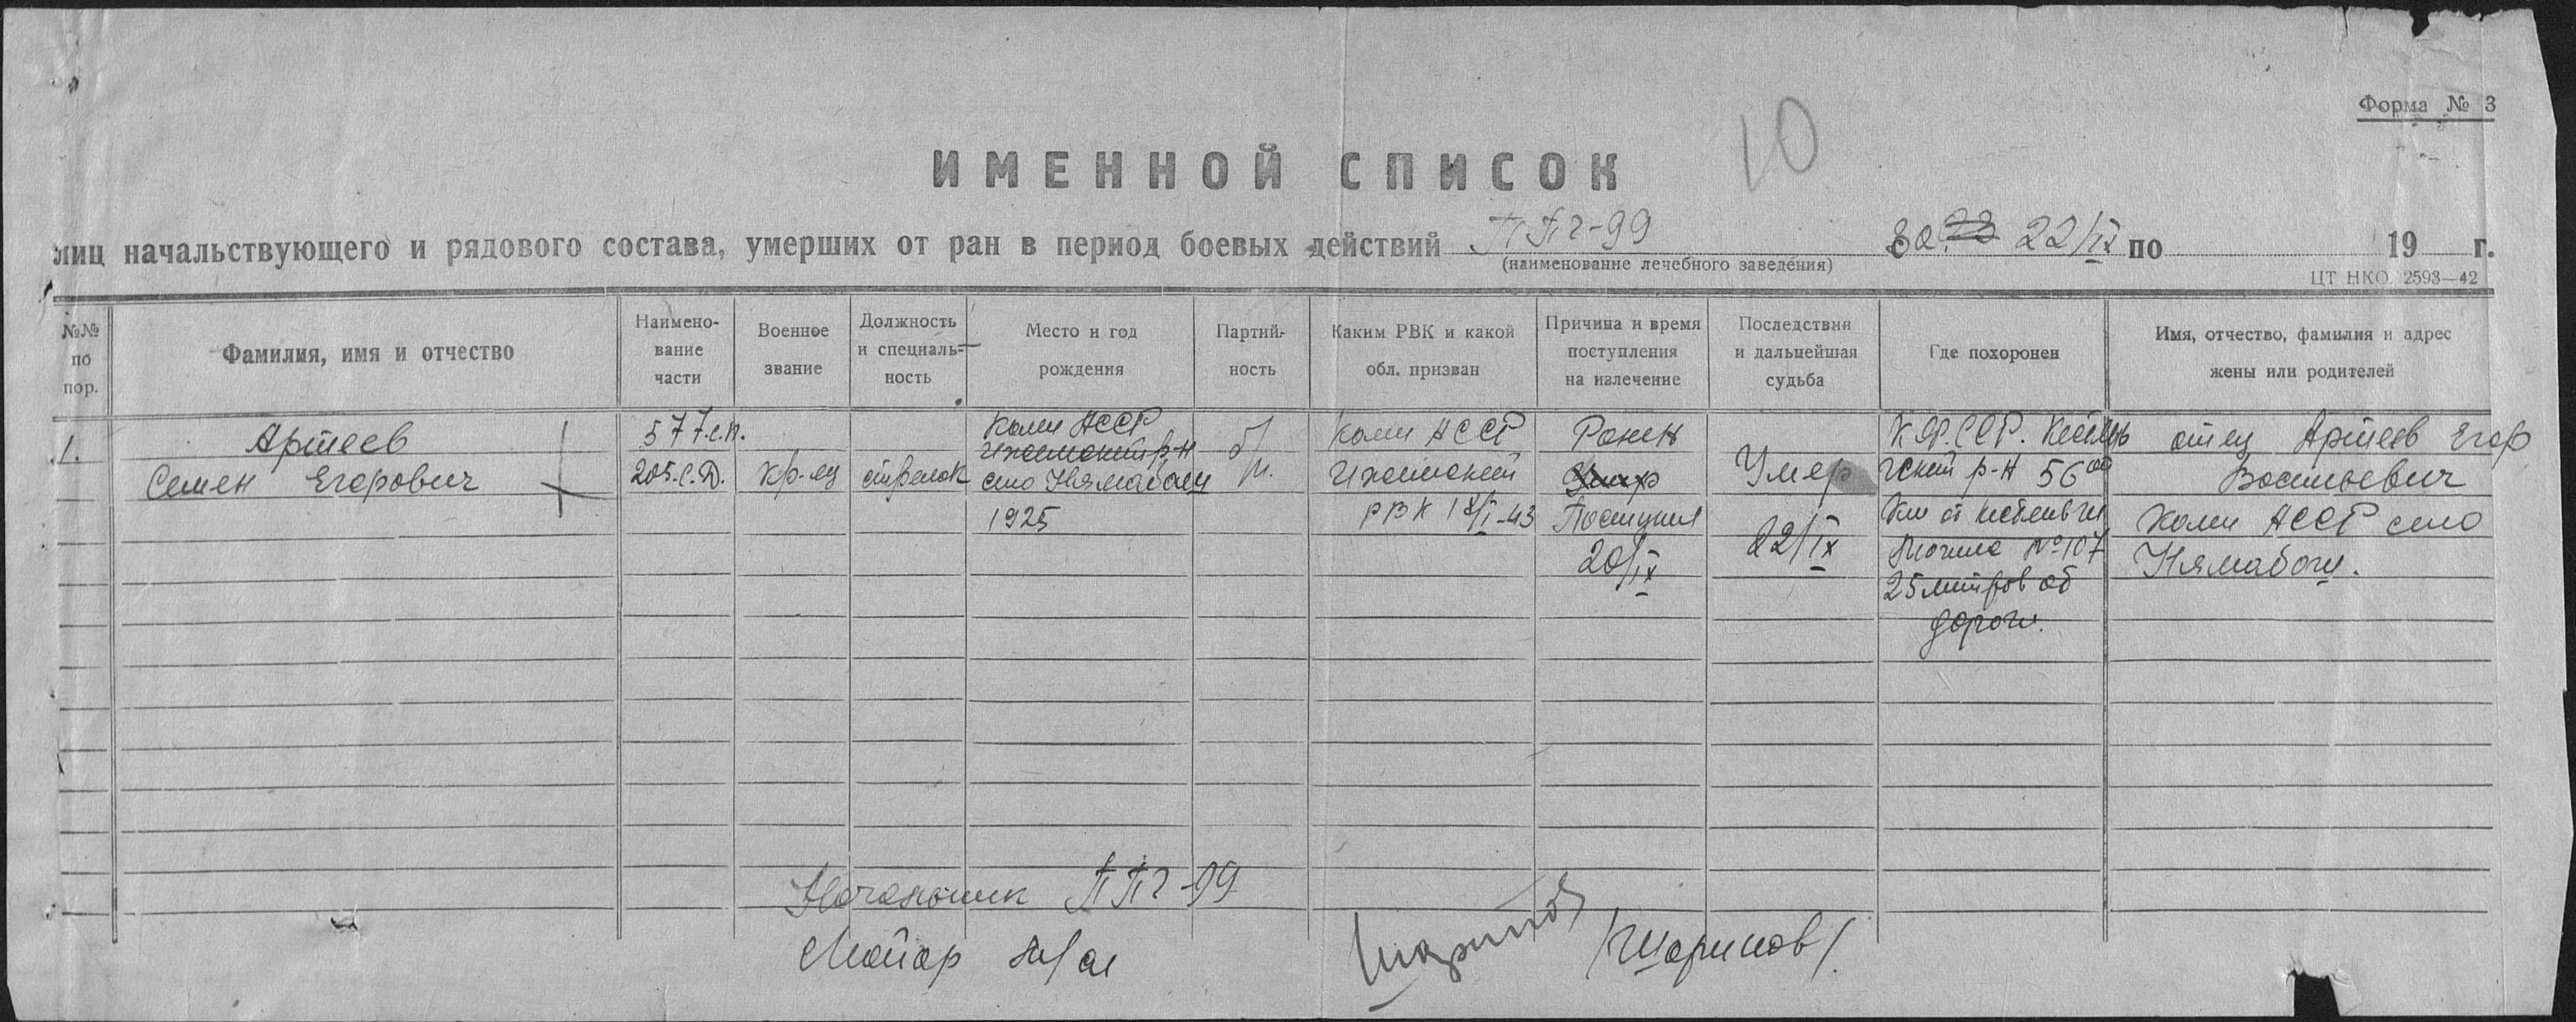 Форма № 3
10
ИМЕННОЙ СПИСОК
лиц начальствующего и рядового состава, умерших от ран в период боевых действий ППГ-99 за 22/IX по 19 г.
(наименование лечебного заведения)
ЦТ НКО 2593—42
№№ по пор.
Фамилия, имя и отчество
Наимено-
вание
части
Военное
звание
Должность
и специаль-
ность
Место и год
рождения
Партий-
ность
Каким РВК и какой
обл. призван
Причина и время
поступления
на излечение
Последствия
и дальнейшая
судьба
Где похоронен
Имя, отчество, фамилия и адрес
жены или родителей
1.
Артеев
Семен Егорович
577 с.п.
205 С.Д.
кр-ец
стрелок
Коми АССР
Ижемский р-н
село Нямабаги
1925
б/п.
Коми АССР
Ижемский
РВК 18/I-43
Ранен
Поступил
20/IX
Умер
22/IX
К.Ф.ССР. Кестень
гский р-н 56 ой
км от Кестеньги
Могила № 107
25 метров от
дороги.
отец Артеев Егор
Васильевич
Коми АССР село
Нямабоги.
Начальник ППГ-99
Майор м/сл
/Шарипов/.